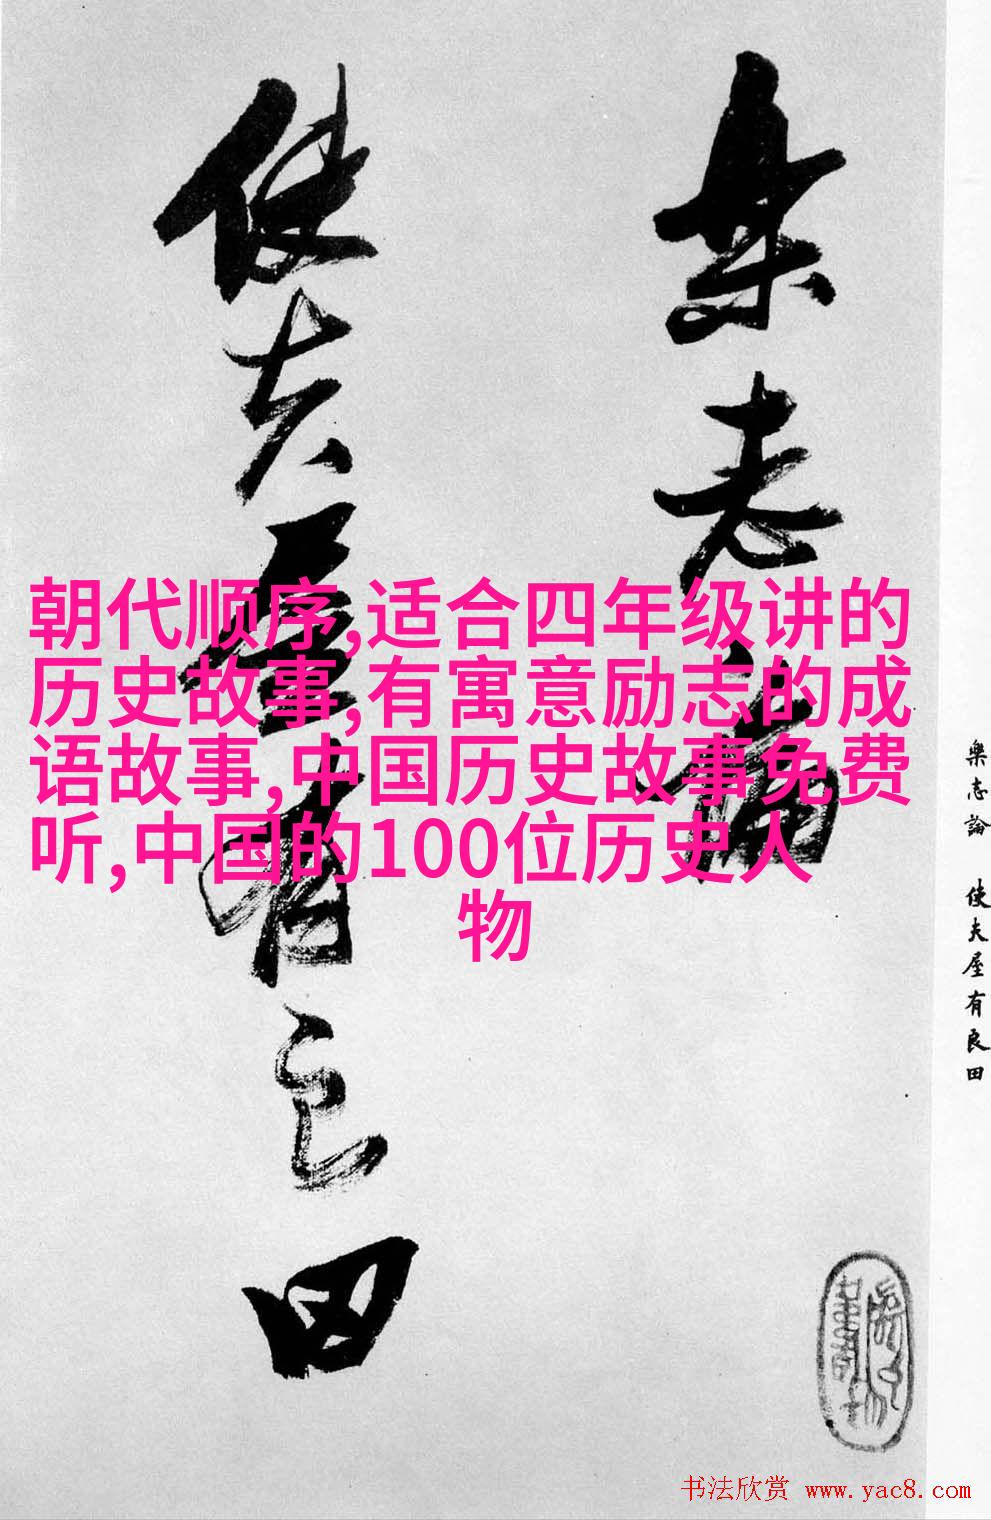 樂志論
使夫屋有良田
朝代顺序,适合四年级讲的
历史故事,有寓意励志的成
语故事,中国历史故事免费
听,中国的100位历史人
物
樂志論 使夫屋有良田
书法欣赏 www.yac8.com